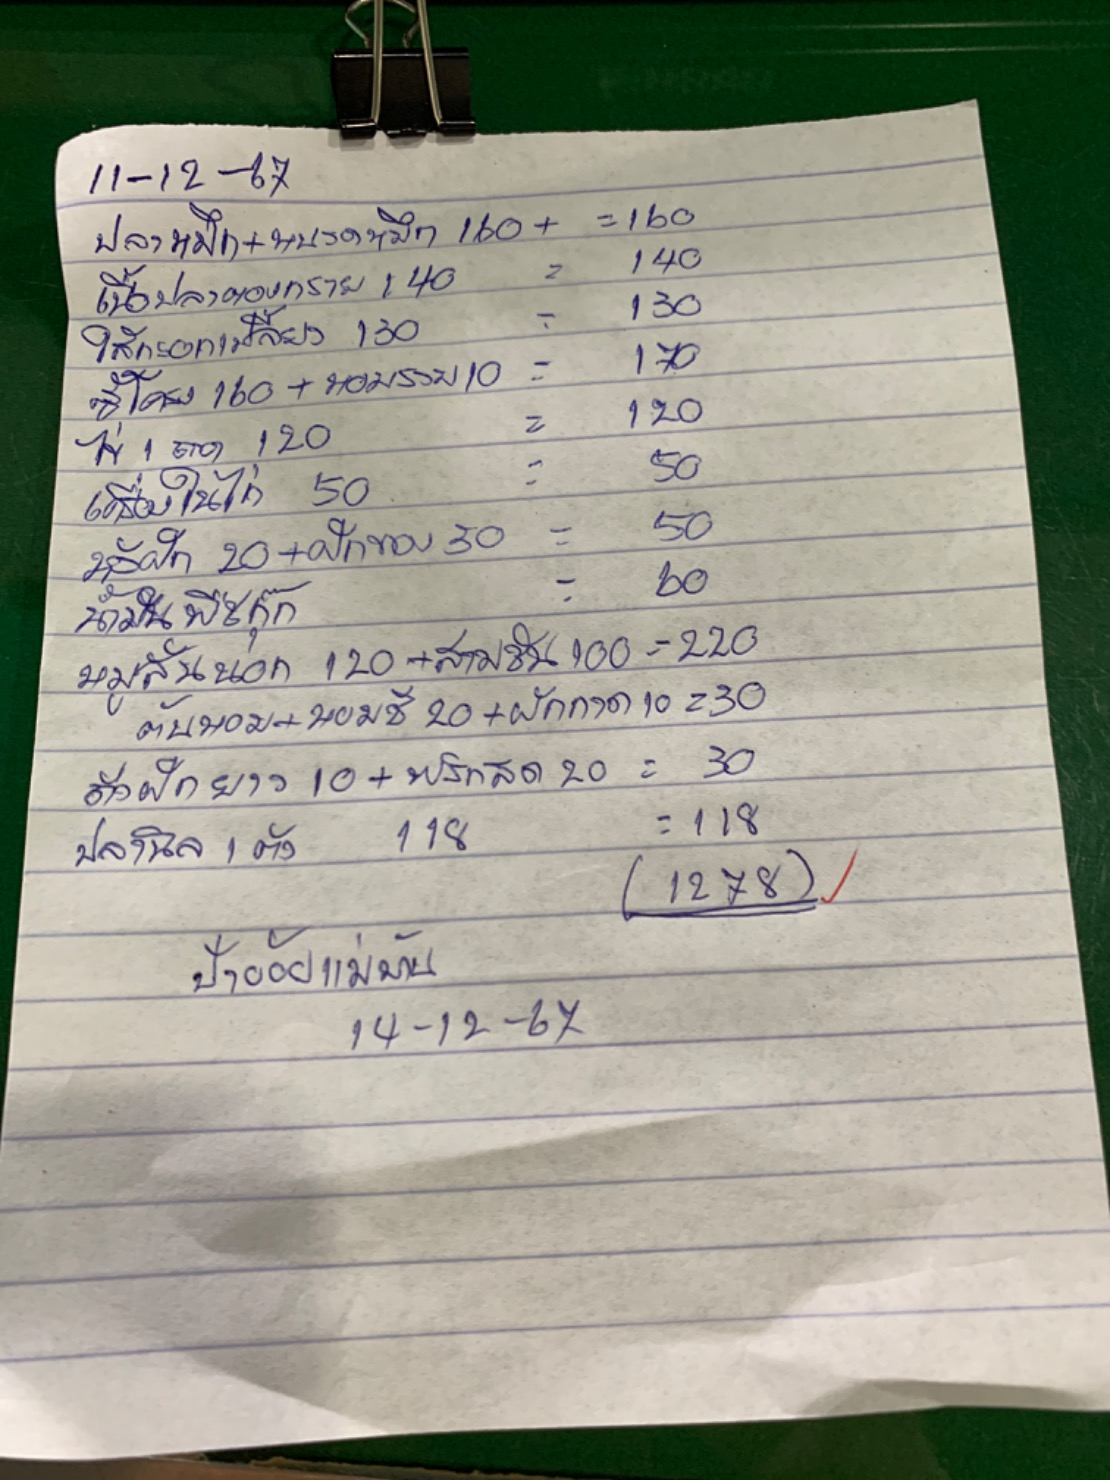 11-12-67
ปลาหมึก+หนวดหมึก 160+ =160
เนื้อปลาทองทราย 140 = 140
ไส้กรอกเปรี้ยว 130 = 130
ซี่โครง 160 + หอมรวม 10 = 170
ไข่ 1 ถาด 120 = 120
เครื่องในไก่ 50 = 50
20 + ฝักทอง 30 = 50
น้ำมันพืชกุ๊ก = 60
หมูสันนอก 120 +สามชั้น 100 =220
ต้นหอม+หอมชี 20 +ผักกาด 10 =30
ถั่วฝักยาว 10 + พริกสด 20 = 30
ปลานิล 1 ตัว 118 = 118
(1278)
ป้าย้อยแม่บ้าน
14-12-67